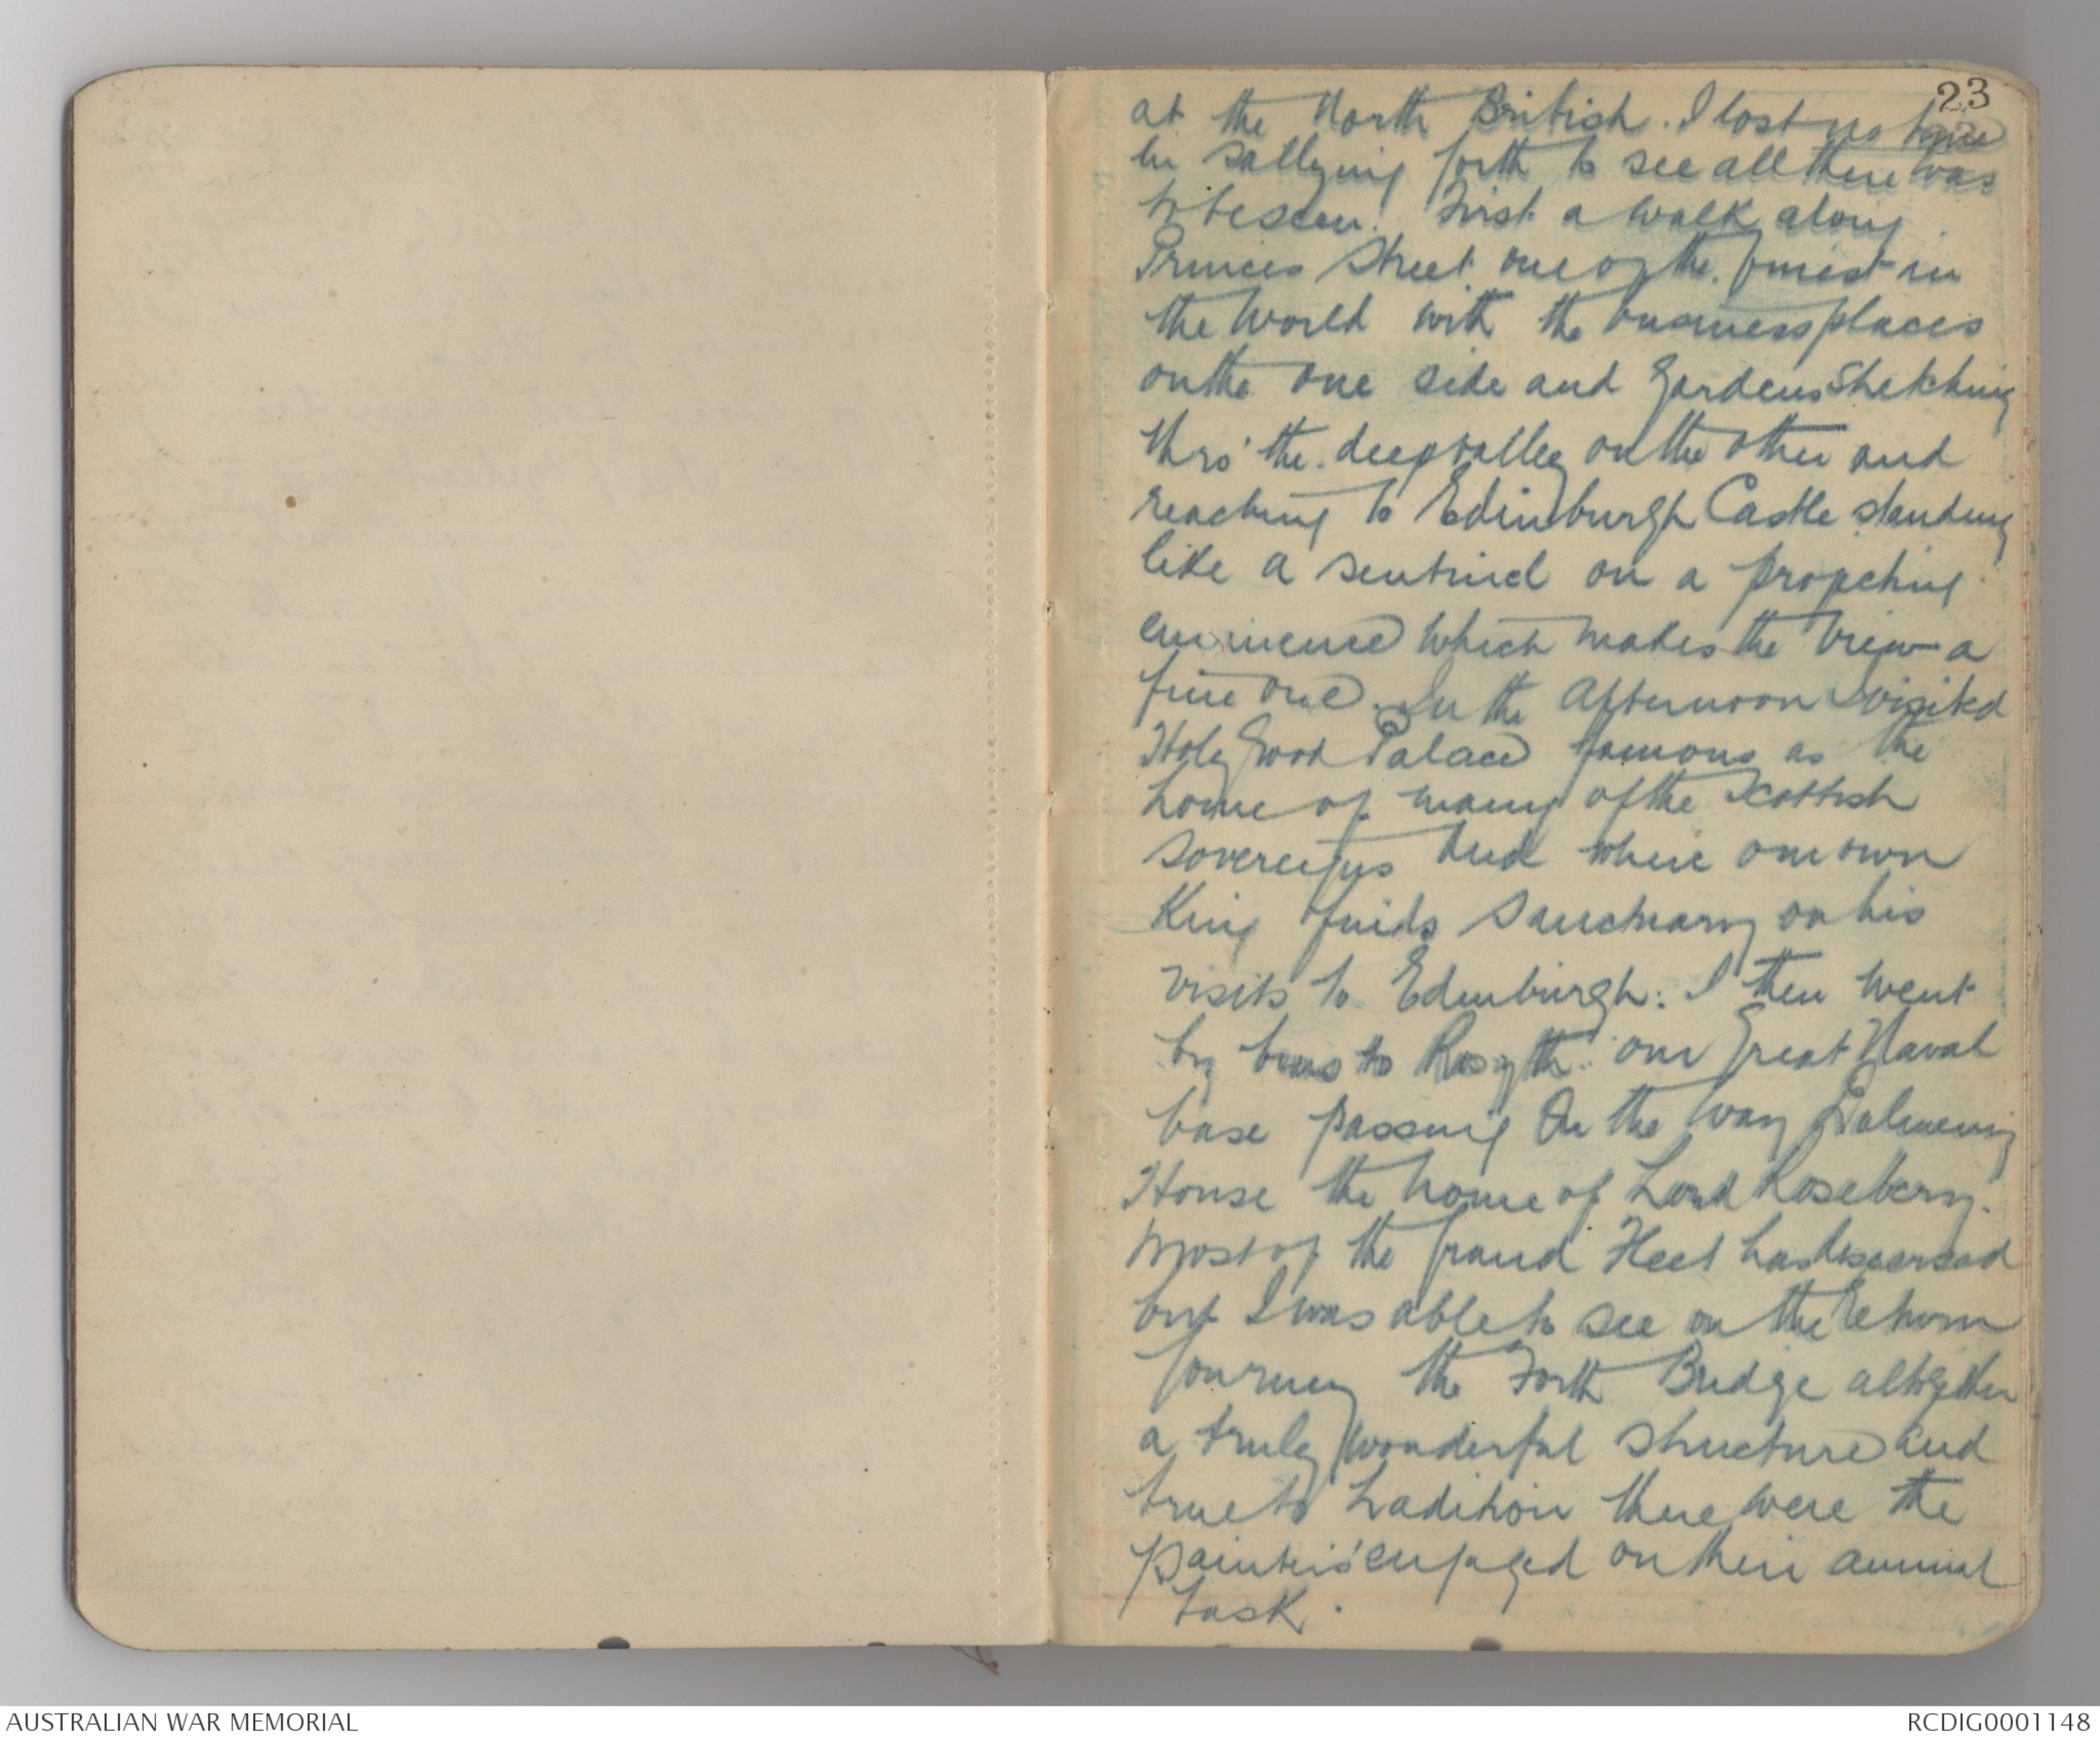 23
at the North British. I lost no time
in sallying forth to see all there was
to be seen. First a walk along
Princes Street one of the finest in
the world with the business places
on the one side and gardens stretching
thro' the deep valley on the other and
reaching to Edinburgh Castle standing
like a sentinel on a projecting
eminence which makes the view a
fine one. In the afternoon I visited
Holy Grood Palace famous as the
home of many of the Scottish
Sovereigns and where our own
King finds sanctuary on his
visits to Edinburgh. I then went
by bus to Rosyth our great Naval
base passing on the way Dalmeny
House the home of Lord Rosebery.
Most of the grand Fleet has dispersed
but I was able to see on the return
journey the Forth Bridge altogether
a truly wonderful structure and
true to tradition there were the
painters engaged on their annual
task.
AUSTRALIAN WAR MEMORIAL
RCDIG0001148